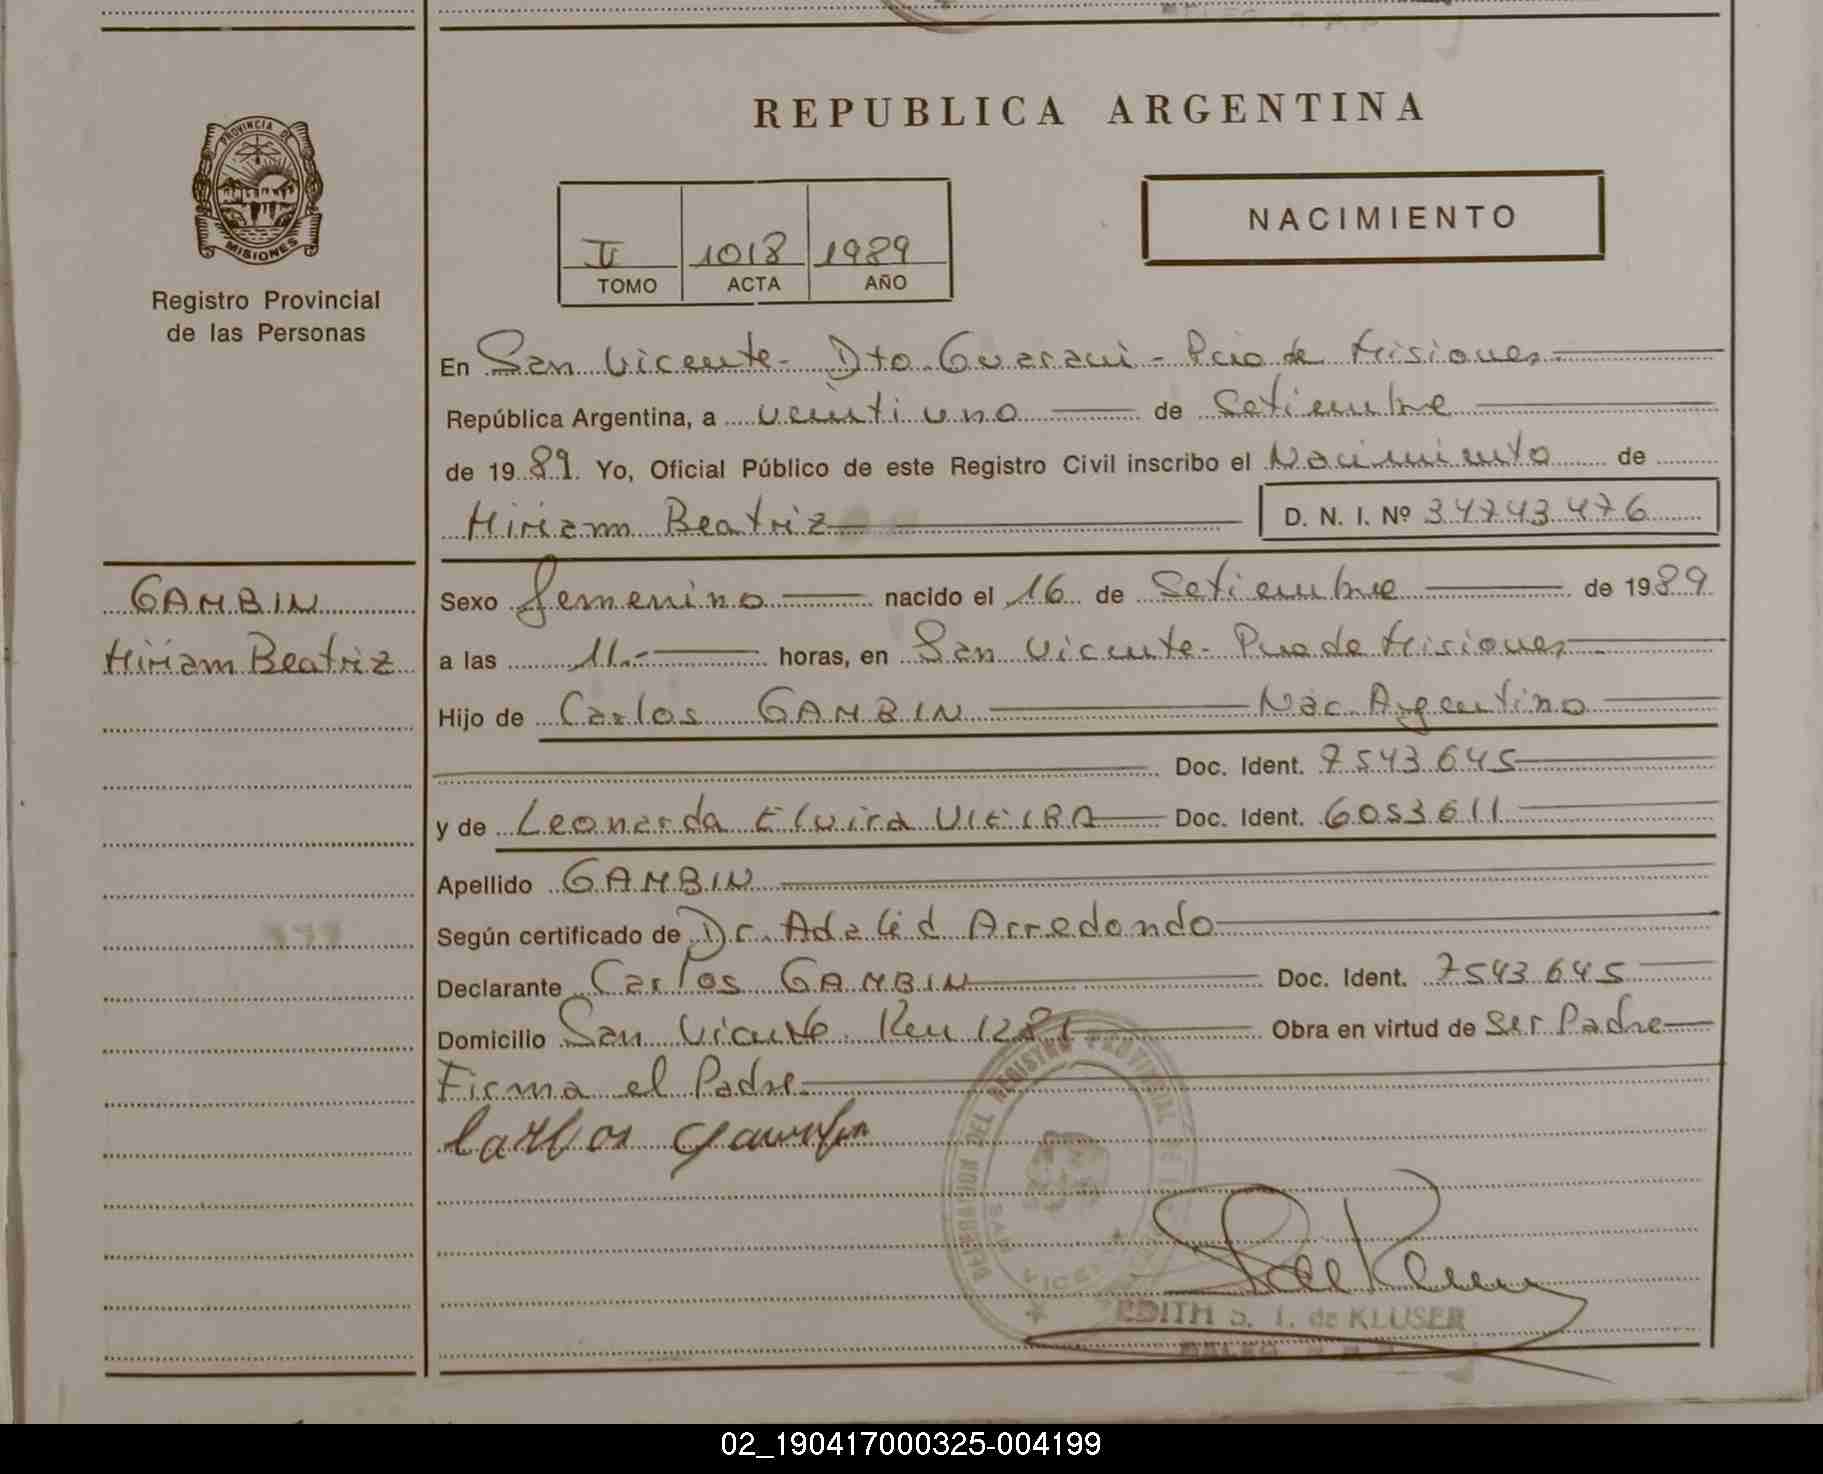 REPUBLICA ARGENTINA
PROVINCIA DE
MISIONES
Registro Provincial
de las Personas
NACIMIENTO
II 1018 1989
TOMO ACTA AÑO
En San Vicente - Dto. Guarani - Pcia de Misiones
República Argentina, a veintiuno de Setiembre
de 1989. Yo, Oficial Público de este Registro Civil inscribo el Nacimiento de
Miriam Beatriz D. N. I. Nº 34743476
GAMBIN
Miriam Beatriz
Sexo femenino nacido el 16 de Setiembre de 1989
a las 11.- horas, en San Vicente - Pcia de Misiones
Hijo de Carlos GAMBIN Nac. Argentino
Doc. Ident. 7543645
y de Leonarda Elvira VIEIRA Doc. Ident. 6053611
Apellido GAMBIN
Según certificado de Dr. Adalid Arredondo
Declarante Carlos GAMBIN Doc. Ident. 7543645
Domicilio San Vicente Km 1281 Obra en virtud de Ser Padre
Firma el Padre
Carlos Gambin
DEL REGISTRO PROVINCIAL DE
SAN VICEN
EDITH S. I. de KLUSER
02_190417000325-004199